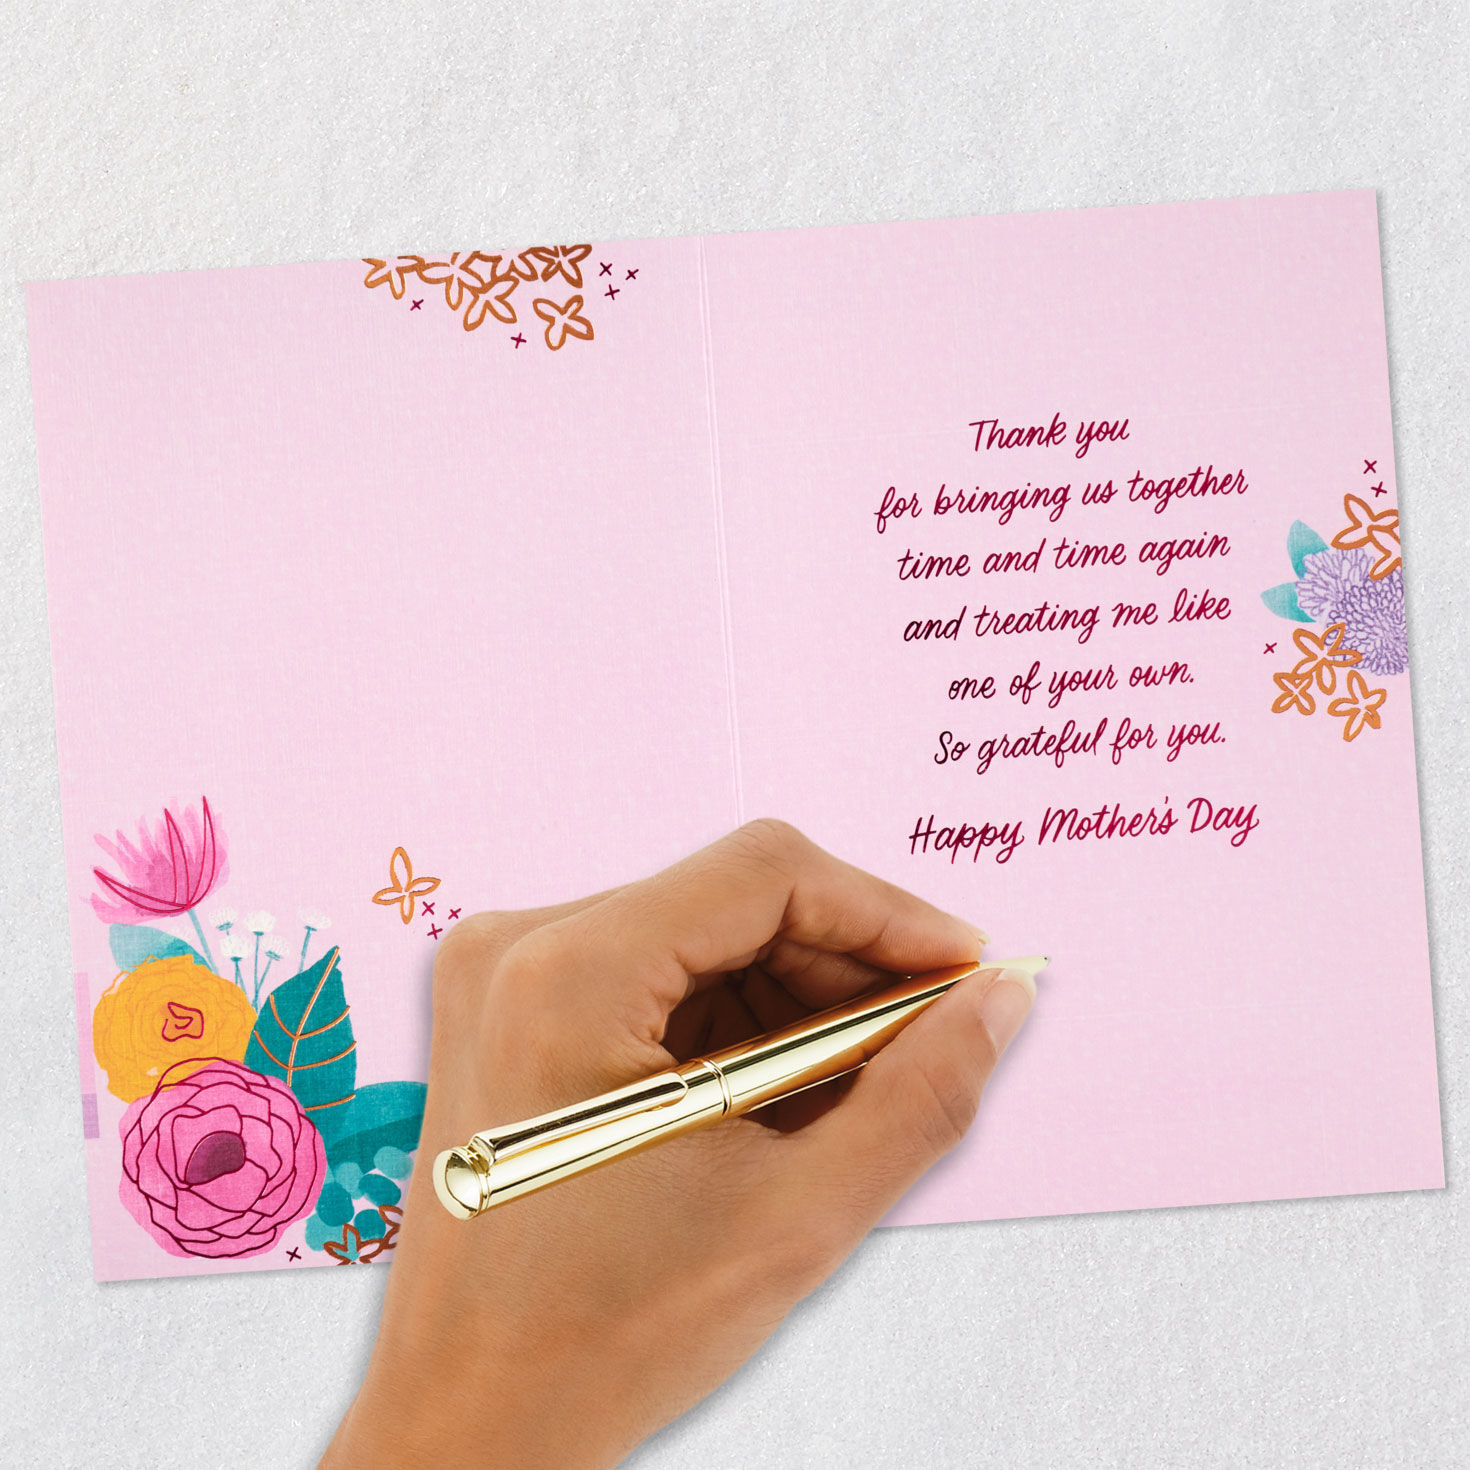 Thank you
for bringing us together
time and time again
and treating me like
one of your own.
So grateful for you.
Happy Mother's Day